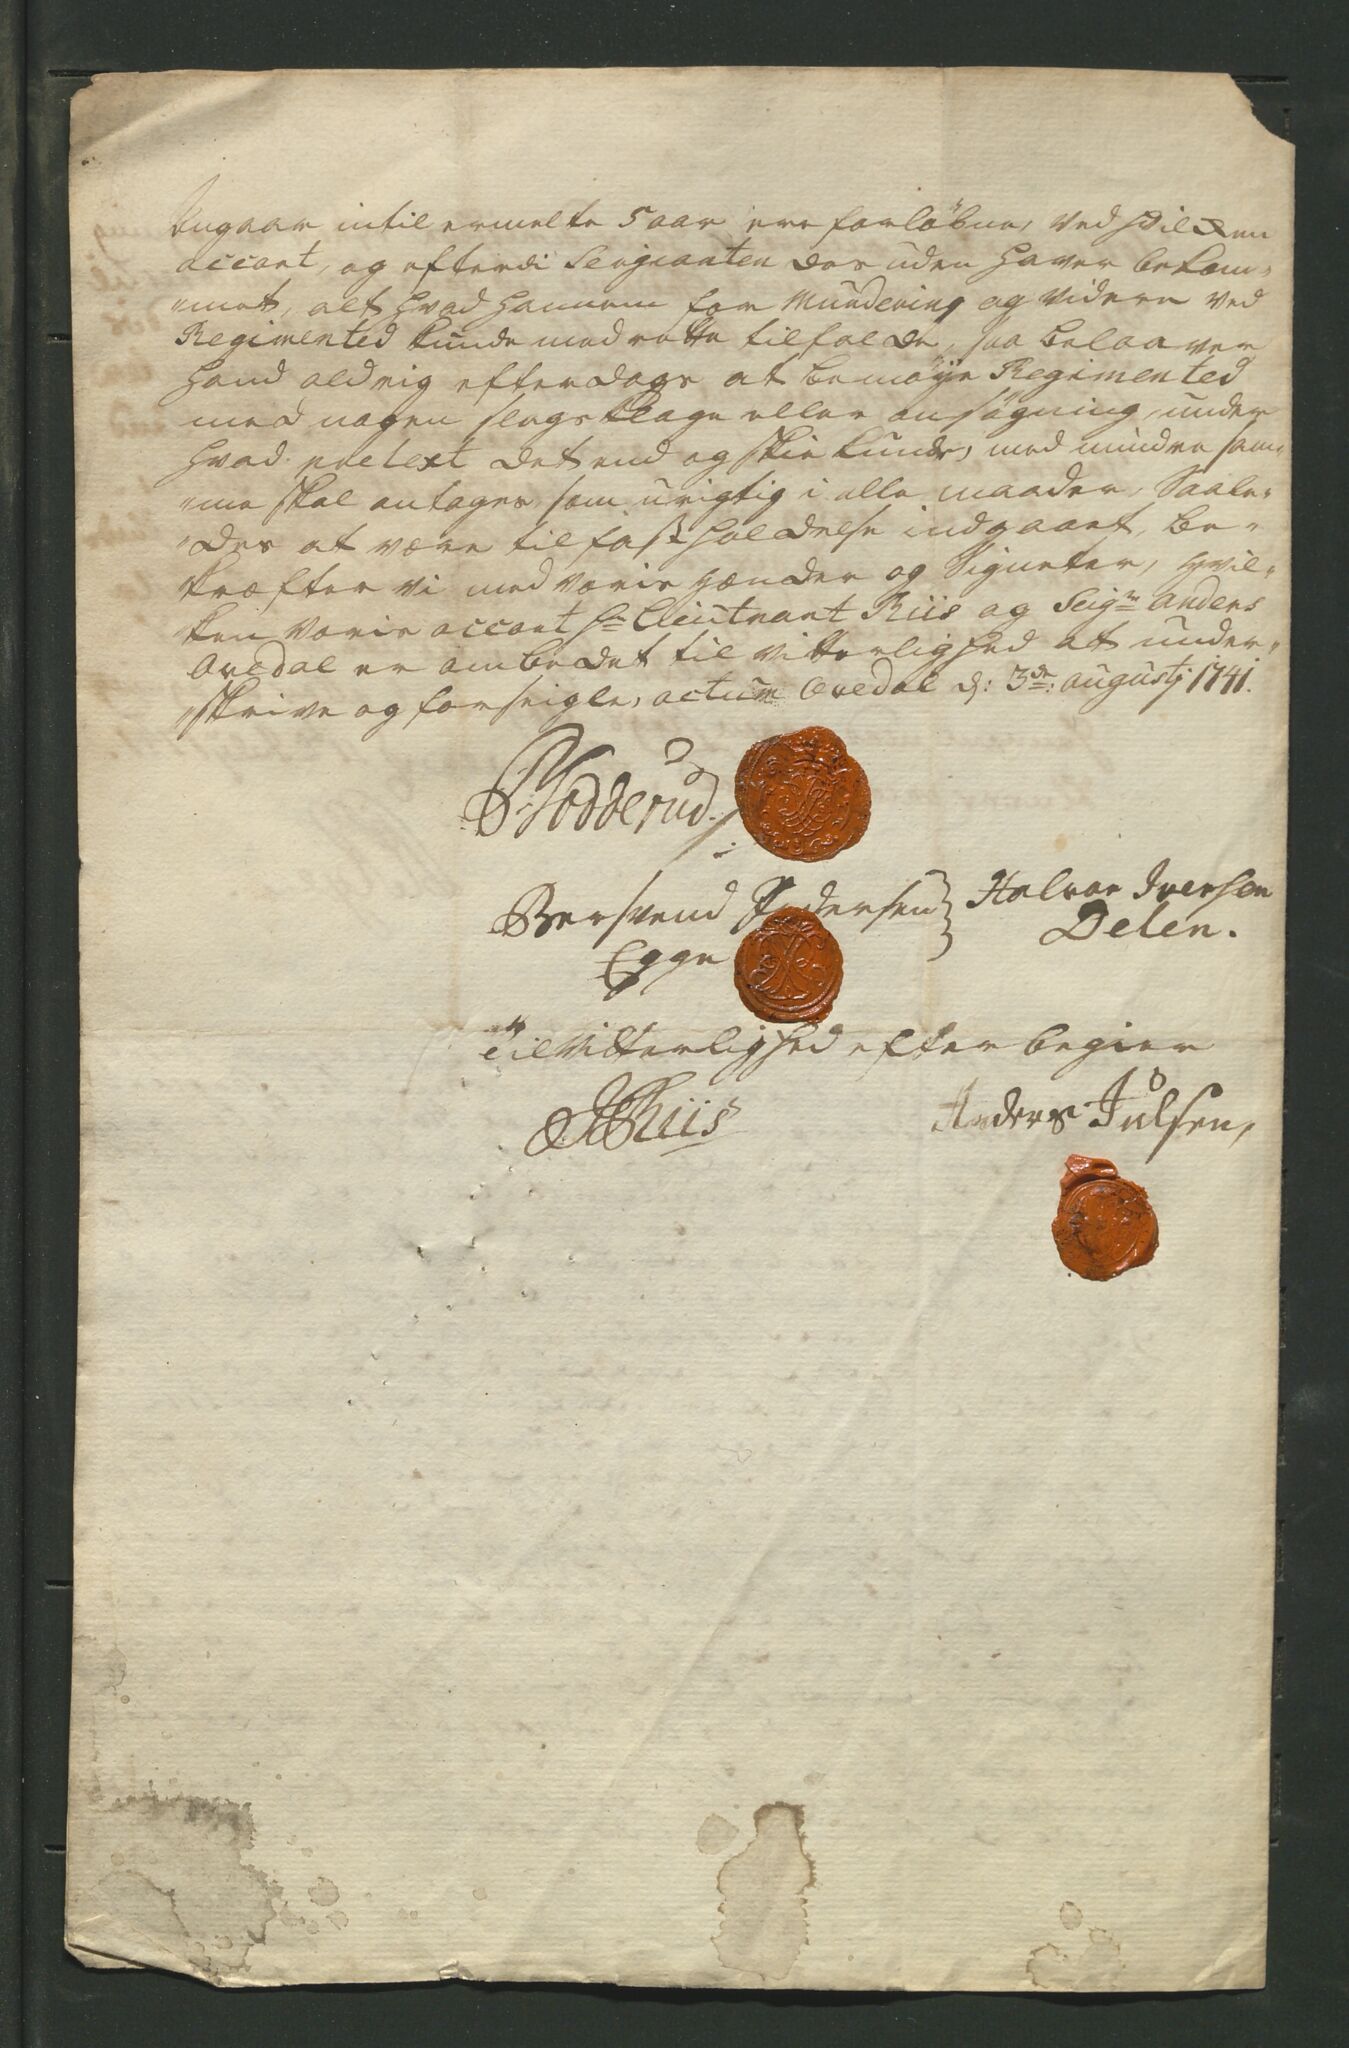 Angaar intil ermelte 5 aar ere forløbne, ved hvilken
accort, og efterdi Sergianten des uden haver bekom-
met, alt hvad hannem for Mundering og videre ved
Regimented kunde med rette tilfalde, saa belaaver
hand aldrig efterdags at bemøye Regimented
med nogen slags klage eller ansøgning, under
hvad pretext det end og skie kunde, med mindre sam-
me skal antages som urigtig i alle maader, Saale-
des at være til fast holdelse indgaaet, be-
kræfter vi med voris hænder og Signeter, hvil-
ken voris accort Hr Lieutnant Riis og Seigr Anders
Ovedal er ombedet til vitterlighed at under-
skrive og forseigle, actum Ovedal d: 3de: augusti 1741.
Hodderud.
Bersvend Pedersen
Egge
Halvor Iversen
Delen.
Til Vitterlighed efter begier
Riis
Anders Julsen,